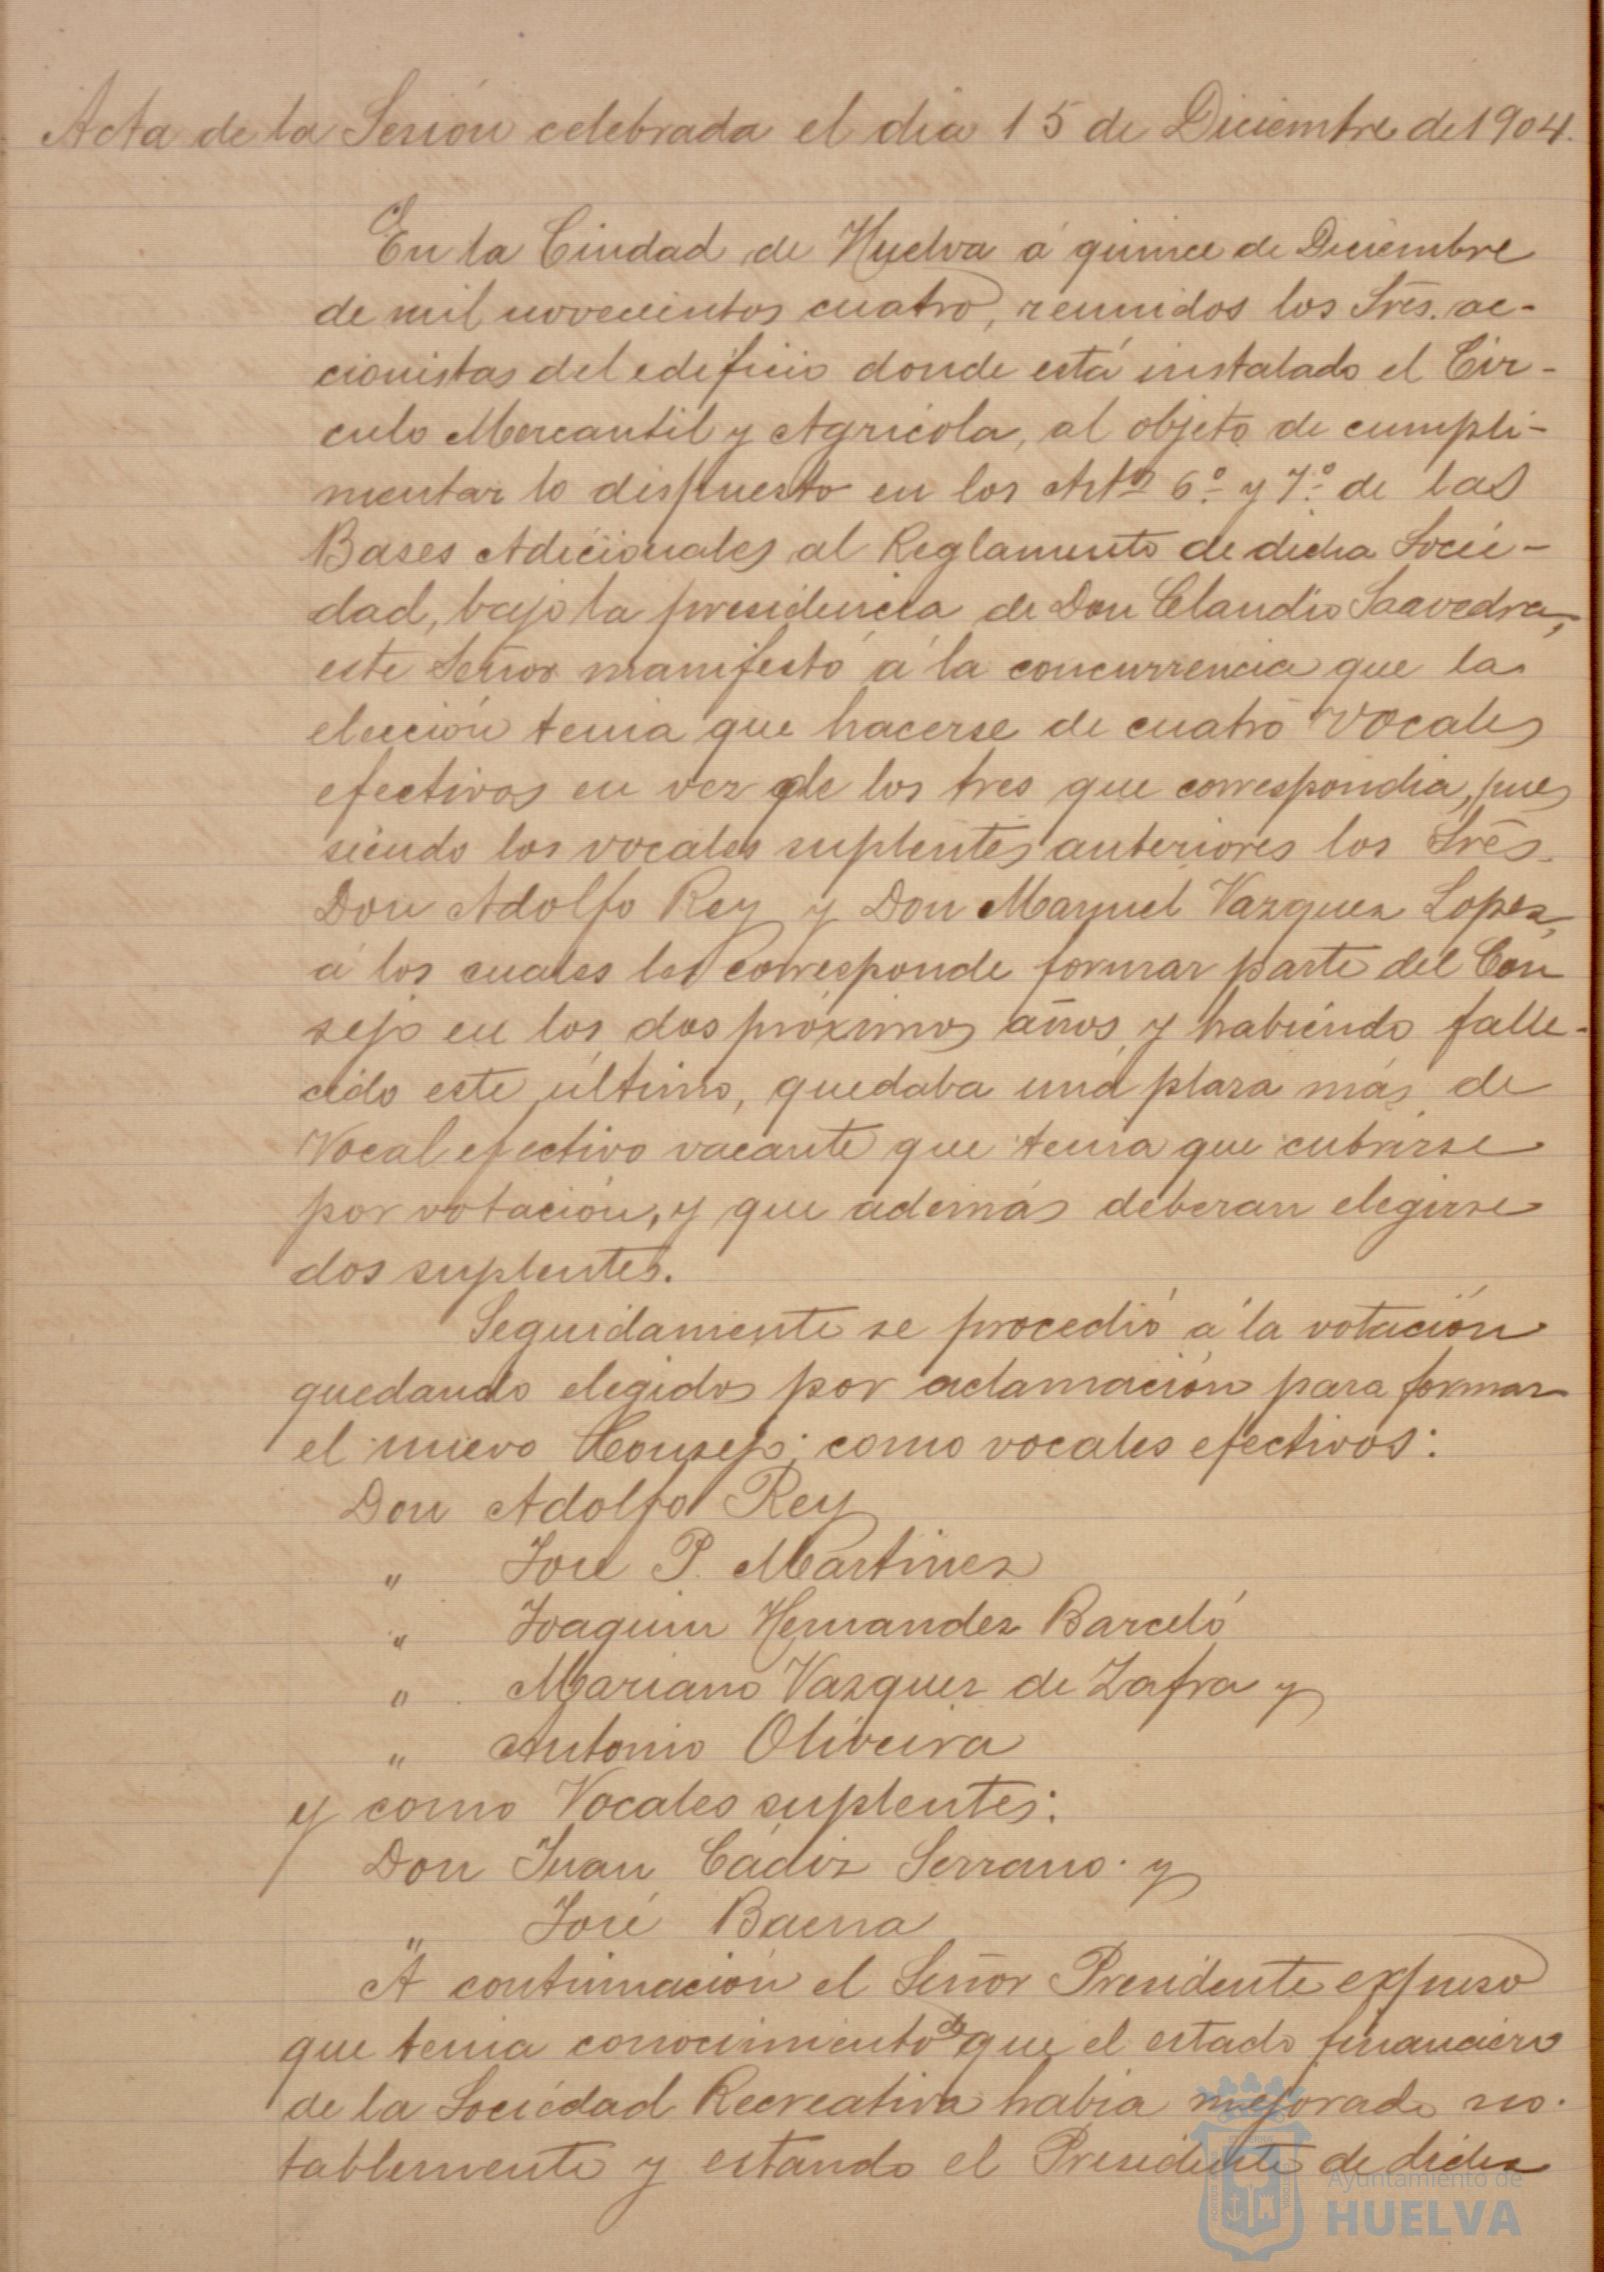 Acta de la Sesión celebrada el dia 15 de Diciembre de 1904.
En la Ciudad de Huelva á quince de Diciembre
de mil novecientos cuatro, reunidos los Srēs. ac-
cionistas del edificio donde está instalado el Cír-
culo Mercantil y Agricola, al objeto de cumpli-
mentar lo dispuesto en los Artos 6.º y 7.º de las
Bases Adicionales al Reglamento de dicha Socie-
dad, bajo la presidencia de Don Claudio Saavedra,
este Señor manifestó á la concurrencia que la
elección tenia que hacerse de cuatro vocales
efectivos en vez de los tres que correspondia, pues
siendo los vocales suplentes anteriores los Srēs.
Don Adolfo Rey y Don Manuel Vazquez Lopez,
á los cuales les corresponde formar parte del Con
sejo en los dos próximos años, y habiendo falle-
cido este último, quedaba una plaza más de
Vocal efectivo vacante que tenia que cubrirse
por votación, y que además deberan elegirse
dos suplentes.
Seguidamente se procedió á la votación
quedando elegidos por aclamación para formar
el nuevo Consejo; como vocales efectivos:
Don Adolfo Rey
" José P. Martinez
" Joaquin Hernandez Barceló
" Mariano Vazquez de Zafra y
" Antonio Oliveira
y como Vocales suplentes:
Don Juan Cádiz Serrano y
" José Baena
A continuación el Señor Presidente expuso
que tenia conocimiento de que el estado financiero
de la Sociedad Recreativa habia mejorado no-
tablemente y estando el Presidente de dicha
Ayuntamiento de
HUELVA